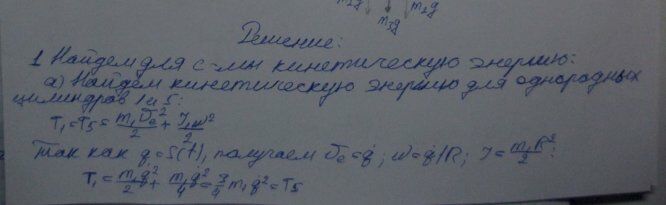 m₂g m₂g
m₃g
Решение:
1 Найдем для с-мы кинетическую энергию:
а) Найдем кинетическую энергию для однородных
цилиндров 1 и 5:
T₁=T₅= m₁V_c²/2 + Jω²/2
Так как q=S(t), получаем V_c=q̇; ω=q̇/R; J=m₁R²/2:
T₁=m₁q̇²/2 + m₁q̇²/4=3/4 m₁q̇²=T₅